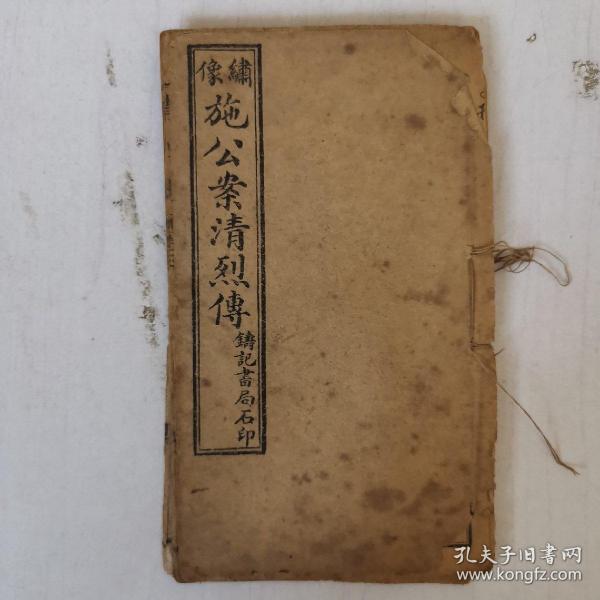 繡像
施公案清烈傳
鑄記書局石印
孔夫子旧书网
www.kongfz.com